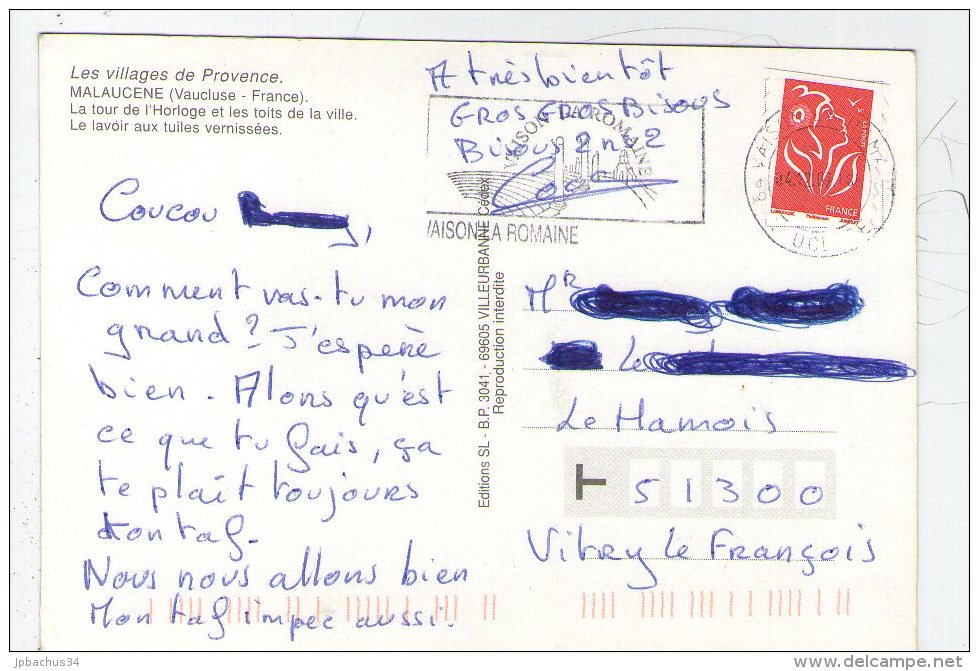 Les villages de Provence.
MALAUCENE (Vaucluse - France).
La tour de l'Horloge et les toits de la ville.
Le lavoir aux tuiles vernissées.
A très bientôt
GROS GROS BISOUS
Bisous 2 nous 2
VAISON LA ROMAINE
VAISON LA ROMAINE
FRANCE
Coucou
Comment vas-tu mon
grand ? J'espère
bien. Alors qu'est
ce que tu fais, ça
te plaît toujours
ton taf.
Nous nous allons bien
Mon taf impec aussi.
Editions SL - B.P. 3041, - 69605 VILLEURBANNE Cédex
Reproduction interdite
Mr
Le Hamois
T 51300
Vitry le François
jpbachus34